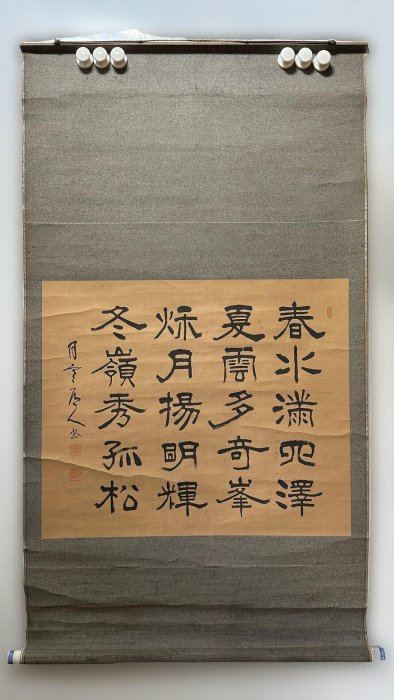 春水滿四澤
夏雲多奇峯
秋月揚明輝
冬嶺秀孤松
月人書